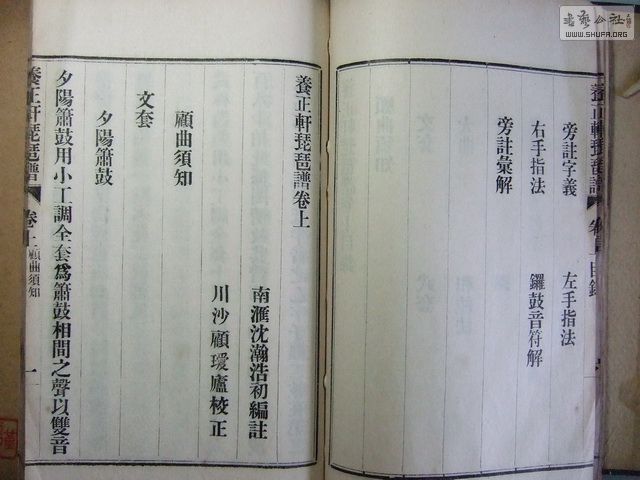 养正軒琵琶譜
旁註字義
左手指法
右手指法
鑼鼓音符解
旁註彙解
養正軒琵琶譜卷上
南滙沈瀚浩初編註
川沙顧瓌廬校正
顧曲須知
文套
夕陽簫鼓
夕陽簫鼓用小工調全套爲簫鼓相間之聲以雙音
養正軒琵琶譜
卷上
顧曲須知
一
WWW.SHUFA.ORG